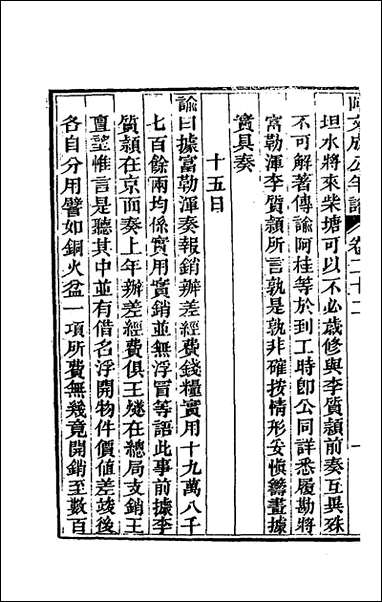 阿文成公年譜 卷二十二 一
坦水將來柴塘可以不必歲修與李質頴前奏互異殊
不可解著傳諭阿桂等於到工時卽公同詳悉履勘將
富勒渾李質頴所言孰是孰非確按情形妥愼籌畫據
實具奏
十五日
諭曰據富勒渾奏報銷辦差經費錢糧實用十九萬八千
七百餘兩均係實用實銷並無浮冒等語此事前據李
質頴在京面奏上年辦差經費俱王燧在總局支銷王
亶望惟言是聽其中並有借名浮開物件價値差竣後
各自分用譬如銅火盆一項所費無幾竟開銷至數百